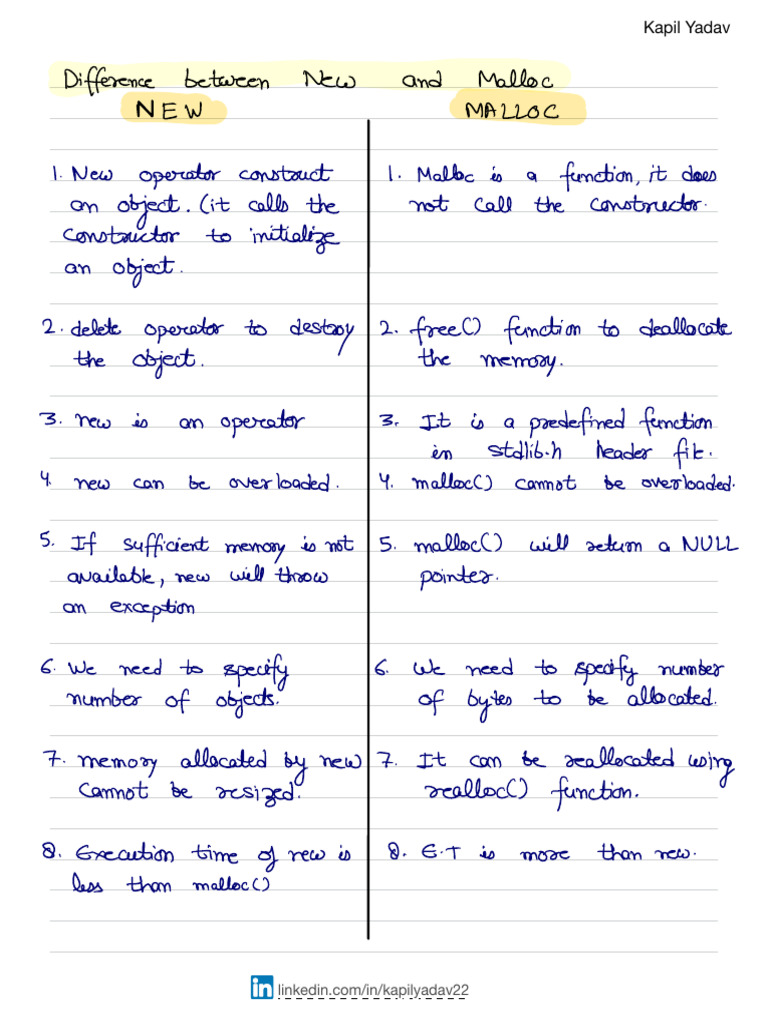 Kapil Yadav
Difference between New and Malloc
NEW
MALLOC
1. New operator construct
an object. (it calls the
constructor to initialize
an object.
1. Malloc is a function, it does
not call the constructor.
2. delete operator to destroy
the object.
2. free() function to deallocate
the memory.
3. new is an operator
3. It is a predefined function
in stdlib.h header file.
4. new can be overloaded.
4. malloc() cannot be overloaded.
5. If sufficient memory is not
available, new will throw
an exception
5. malloc() will return a NULL
pointer.
6. We need to specify
number of objects.
6. We need to specify number
of bytes to be allocated.
7. memory allocated by new
cannot be resized.
7. It can be reallocated using
realloc() function.
8. Execution time of new is
less than malloc()
8. E.T is more than new.
in linkedin.com/in/kapilyadav22